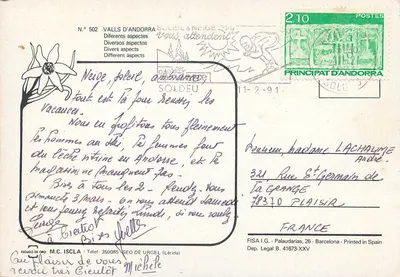 N.° 502 VALLS D'ANDORRA
Diferents aspectes
Diversos aspectos
Divers aspects
Different aspects
vous attendent
SOLDEU
11-2-91
2,10 POSTES
PRINCIPAT D'ANDORRA
Neige, soleil,
tout est là pour réussir les
vacances.
Nous en profitons tous pleinement
les hommes au ski, les femmes font
du lèche vitrine en Andorre, et les
magasins ne manquent pas.
Bise à tous les 2. Rendez-vous
dimanche 3 mars. on vous attend samedi
Serge
à Bientôt
Bises
Au plaisir de vous
revoir très bientôt Michèle
Monsieur, madame LACHAUME
André
321, Rue St Germain de
la GRANGE
78370 PLAISIR
FRANCE
M.C. ISCLA - Tel. 350085 SEO DE URGEL (Lérida)
FISA I.G. - Palaudarias, 26 - Barcelona - Printed in Spain
Dep. Legal B. 41673-XXV